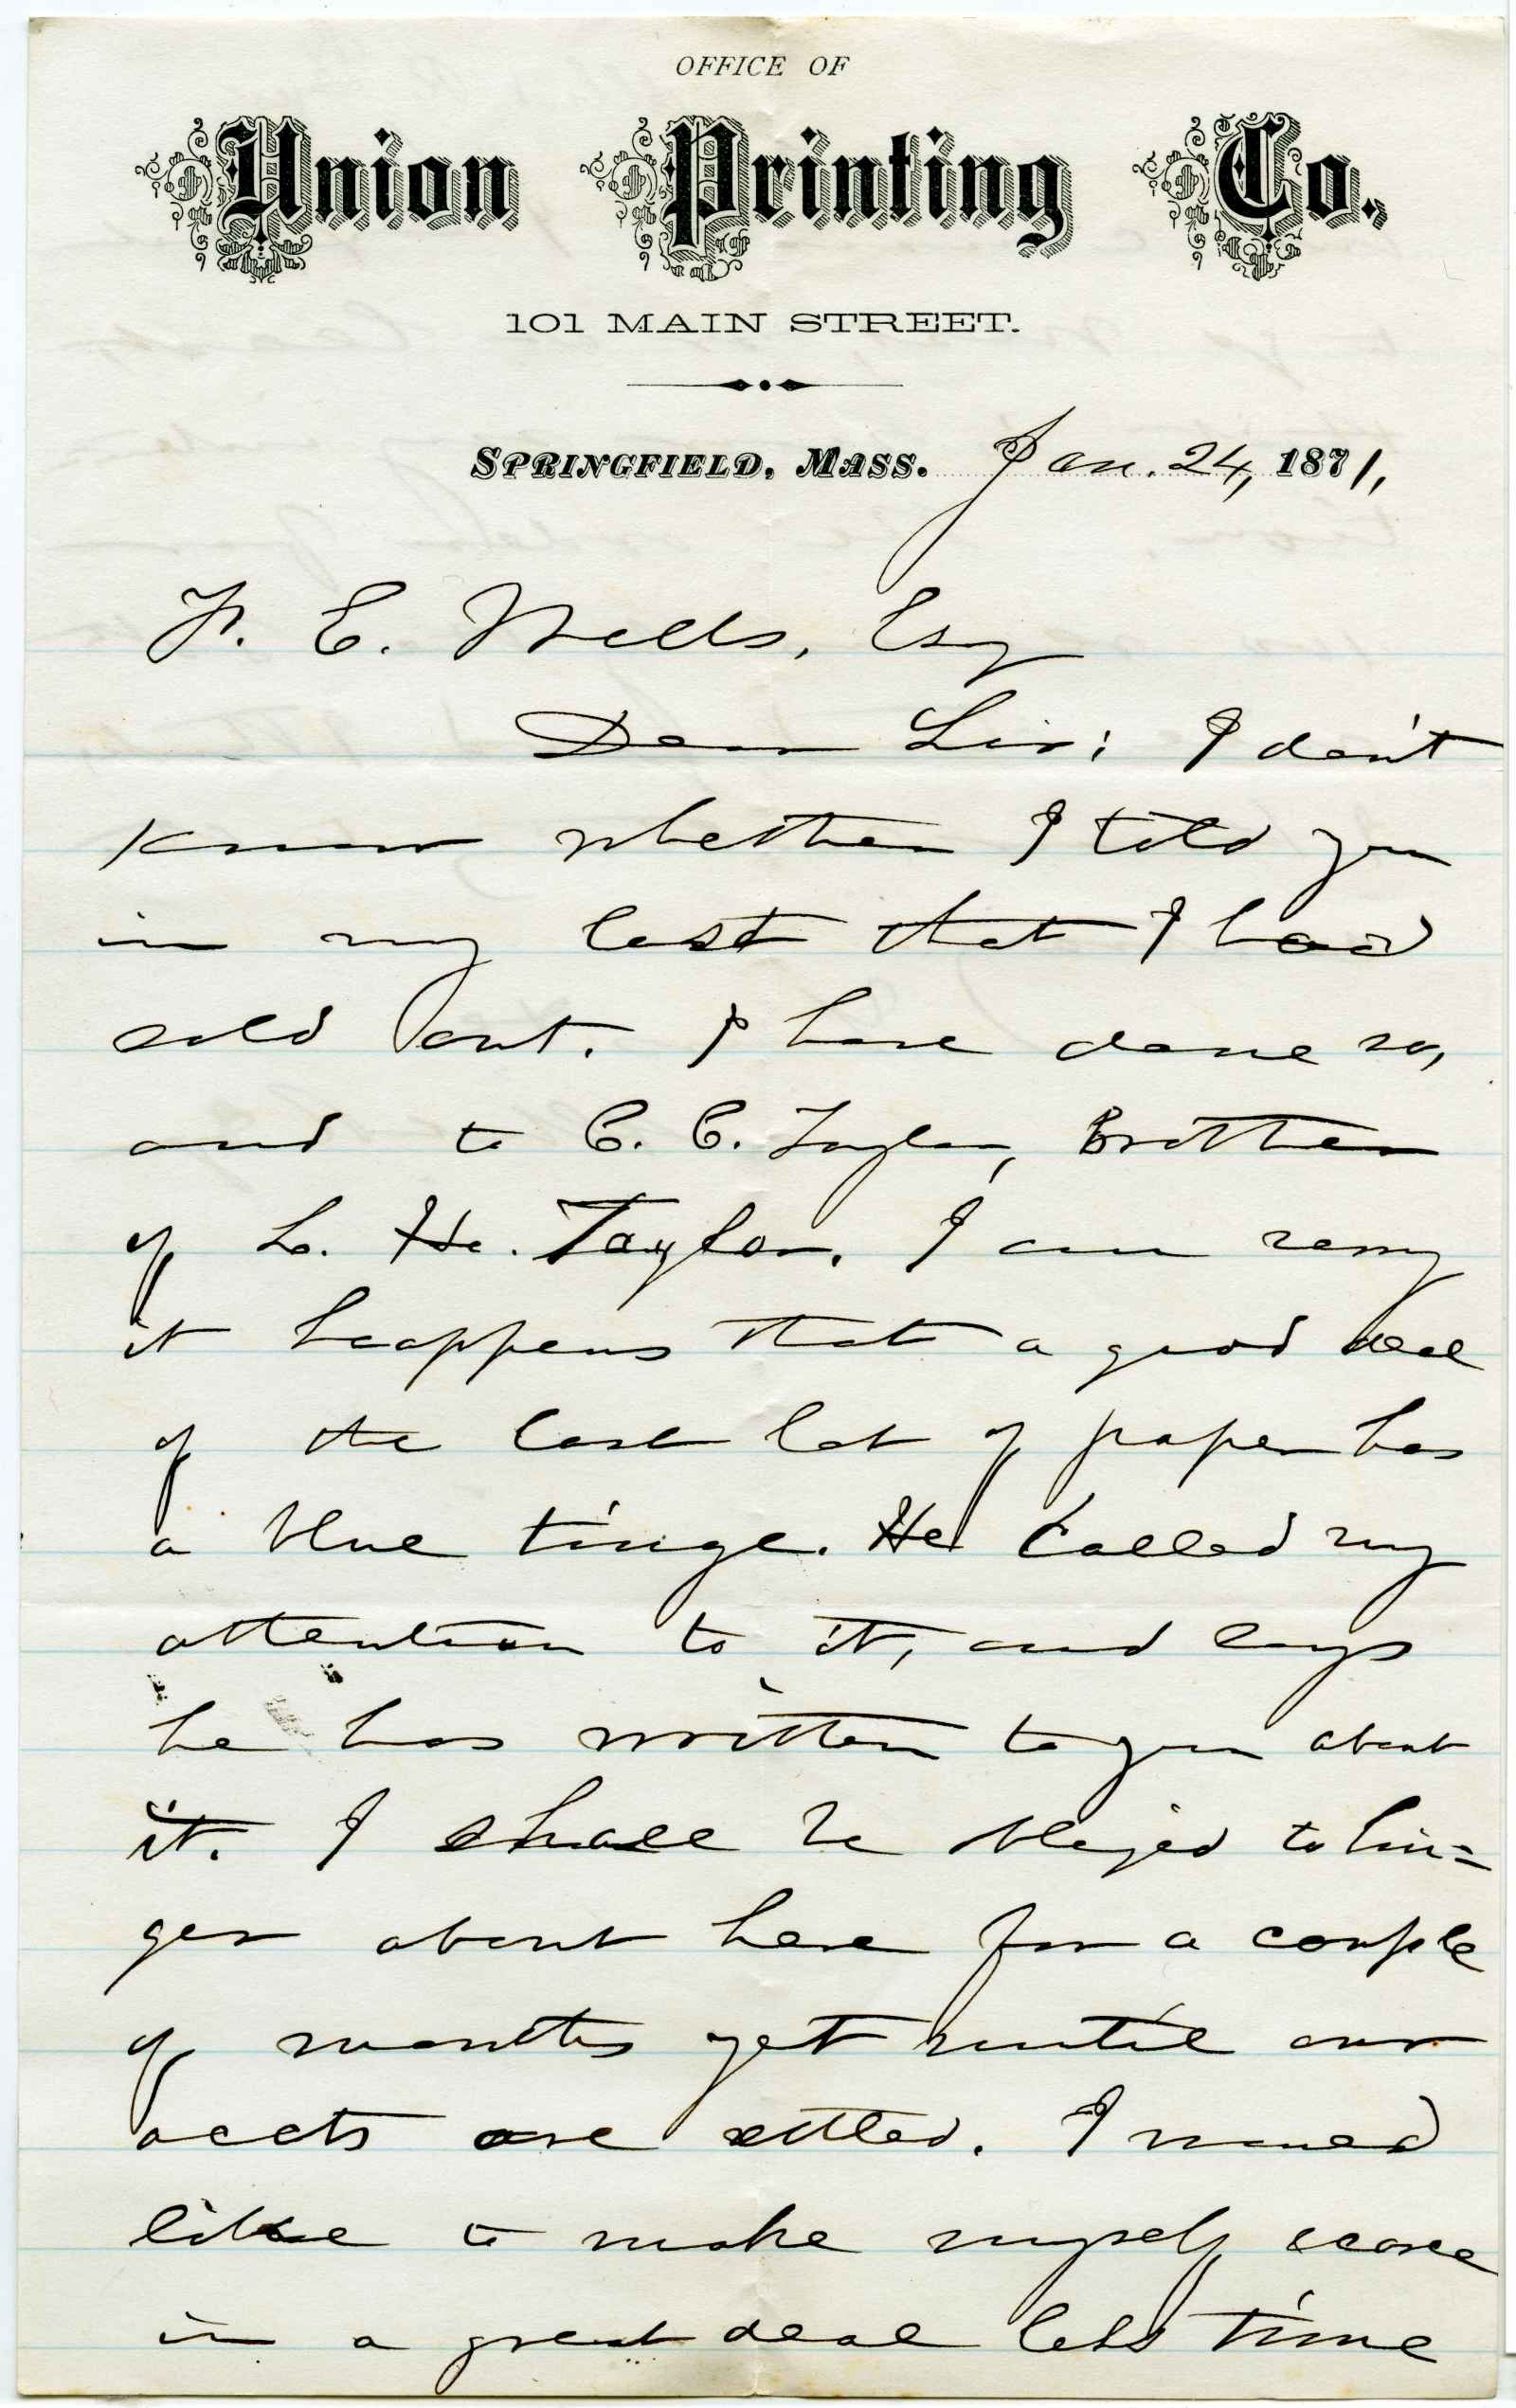 OFFICE OF
Union Printing Co.
101 MAIN STREET.
SPRINGFIELD, MASS. Jan. 24, 1871,
F. E. Wells, Esq
Dear Sir; I don't
know whether I told you
in my last that I had
sold out. I have done so,
and to C. C. Taylor, Brother
of L. H. Taylor. I am sorry
it happens that a good deal
of the last lot of paper has
a blue tinge. He called my
attention to it, and says
he has written to you about
it. I shall be obliged to lin=
ger about here for a couple
of months yet until our
accts are settled. I would
like to make myself scarce
in a great deal less time